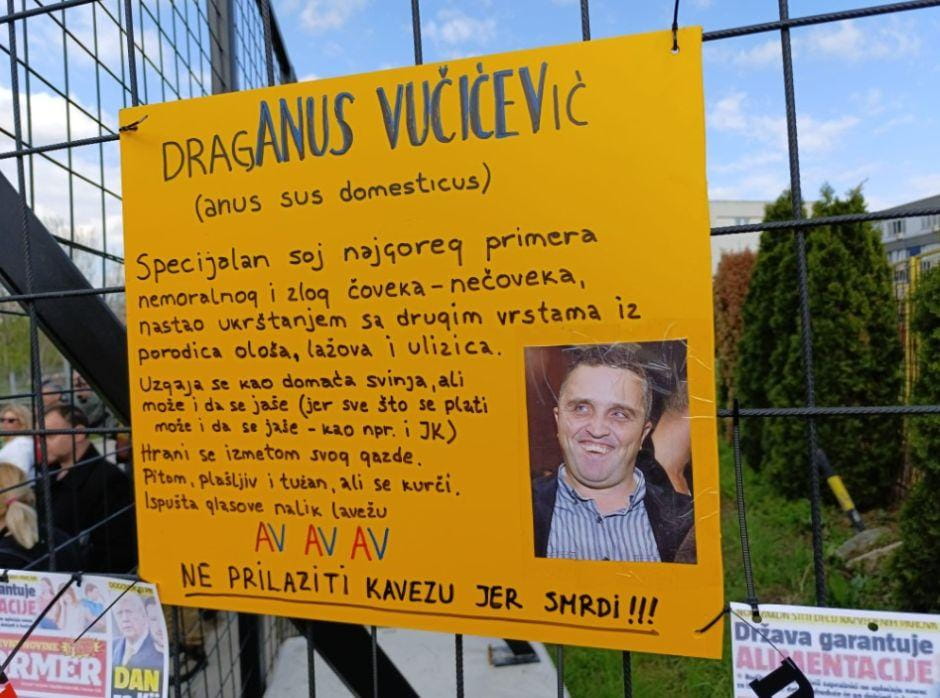 DRAGANUS VUČIĆEVIĆ
(anus sus domesticus)
Specijalan soj najgoreg primera
nemoralnog i zlog čoveka - nečoveka,
nastao ukrštanjem sa drugim vrstama iz
porodica ološa, lažova i ulizica.
Uzgaja se kao domaća svinja, ali
može i da se jaše (jer sve što se plati
može i da se jaše - kao npr. i JK)
Hrani se izmetom svog gazde.
Pitom, plašljiv i tužan, ali se kurči.
Ispušta glasove nalik lavežu
AV AV AV
NE PRILAZITI KAVEZU JER SMRDI!!!
DAN
Država garantuje
ALIMENTACIJE